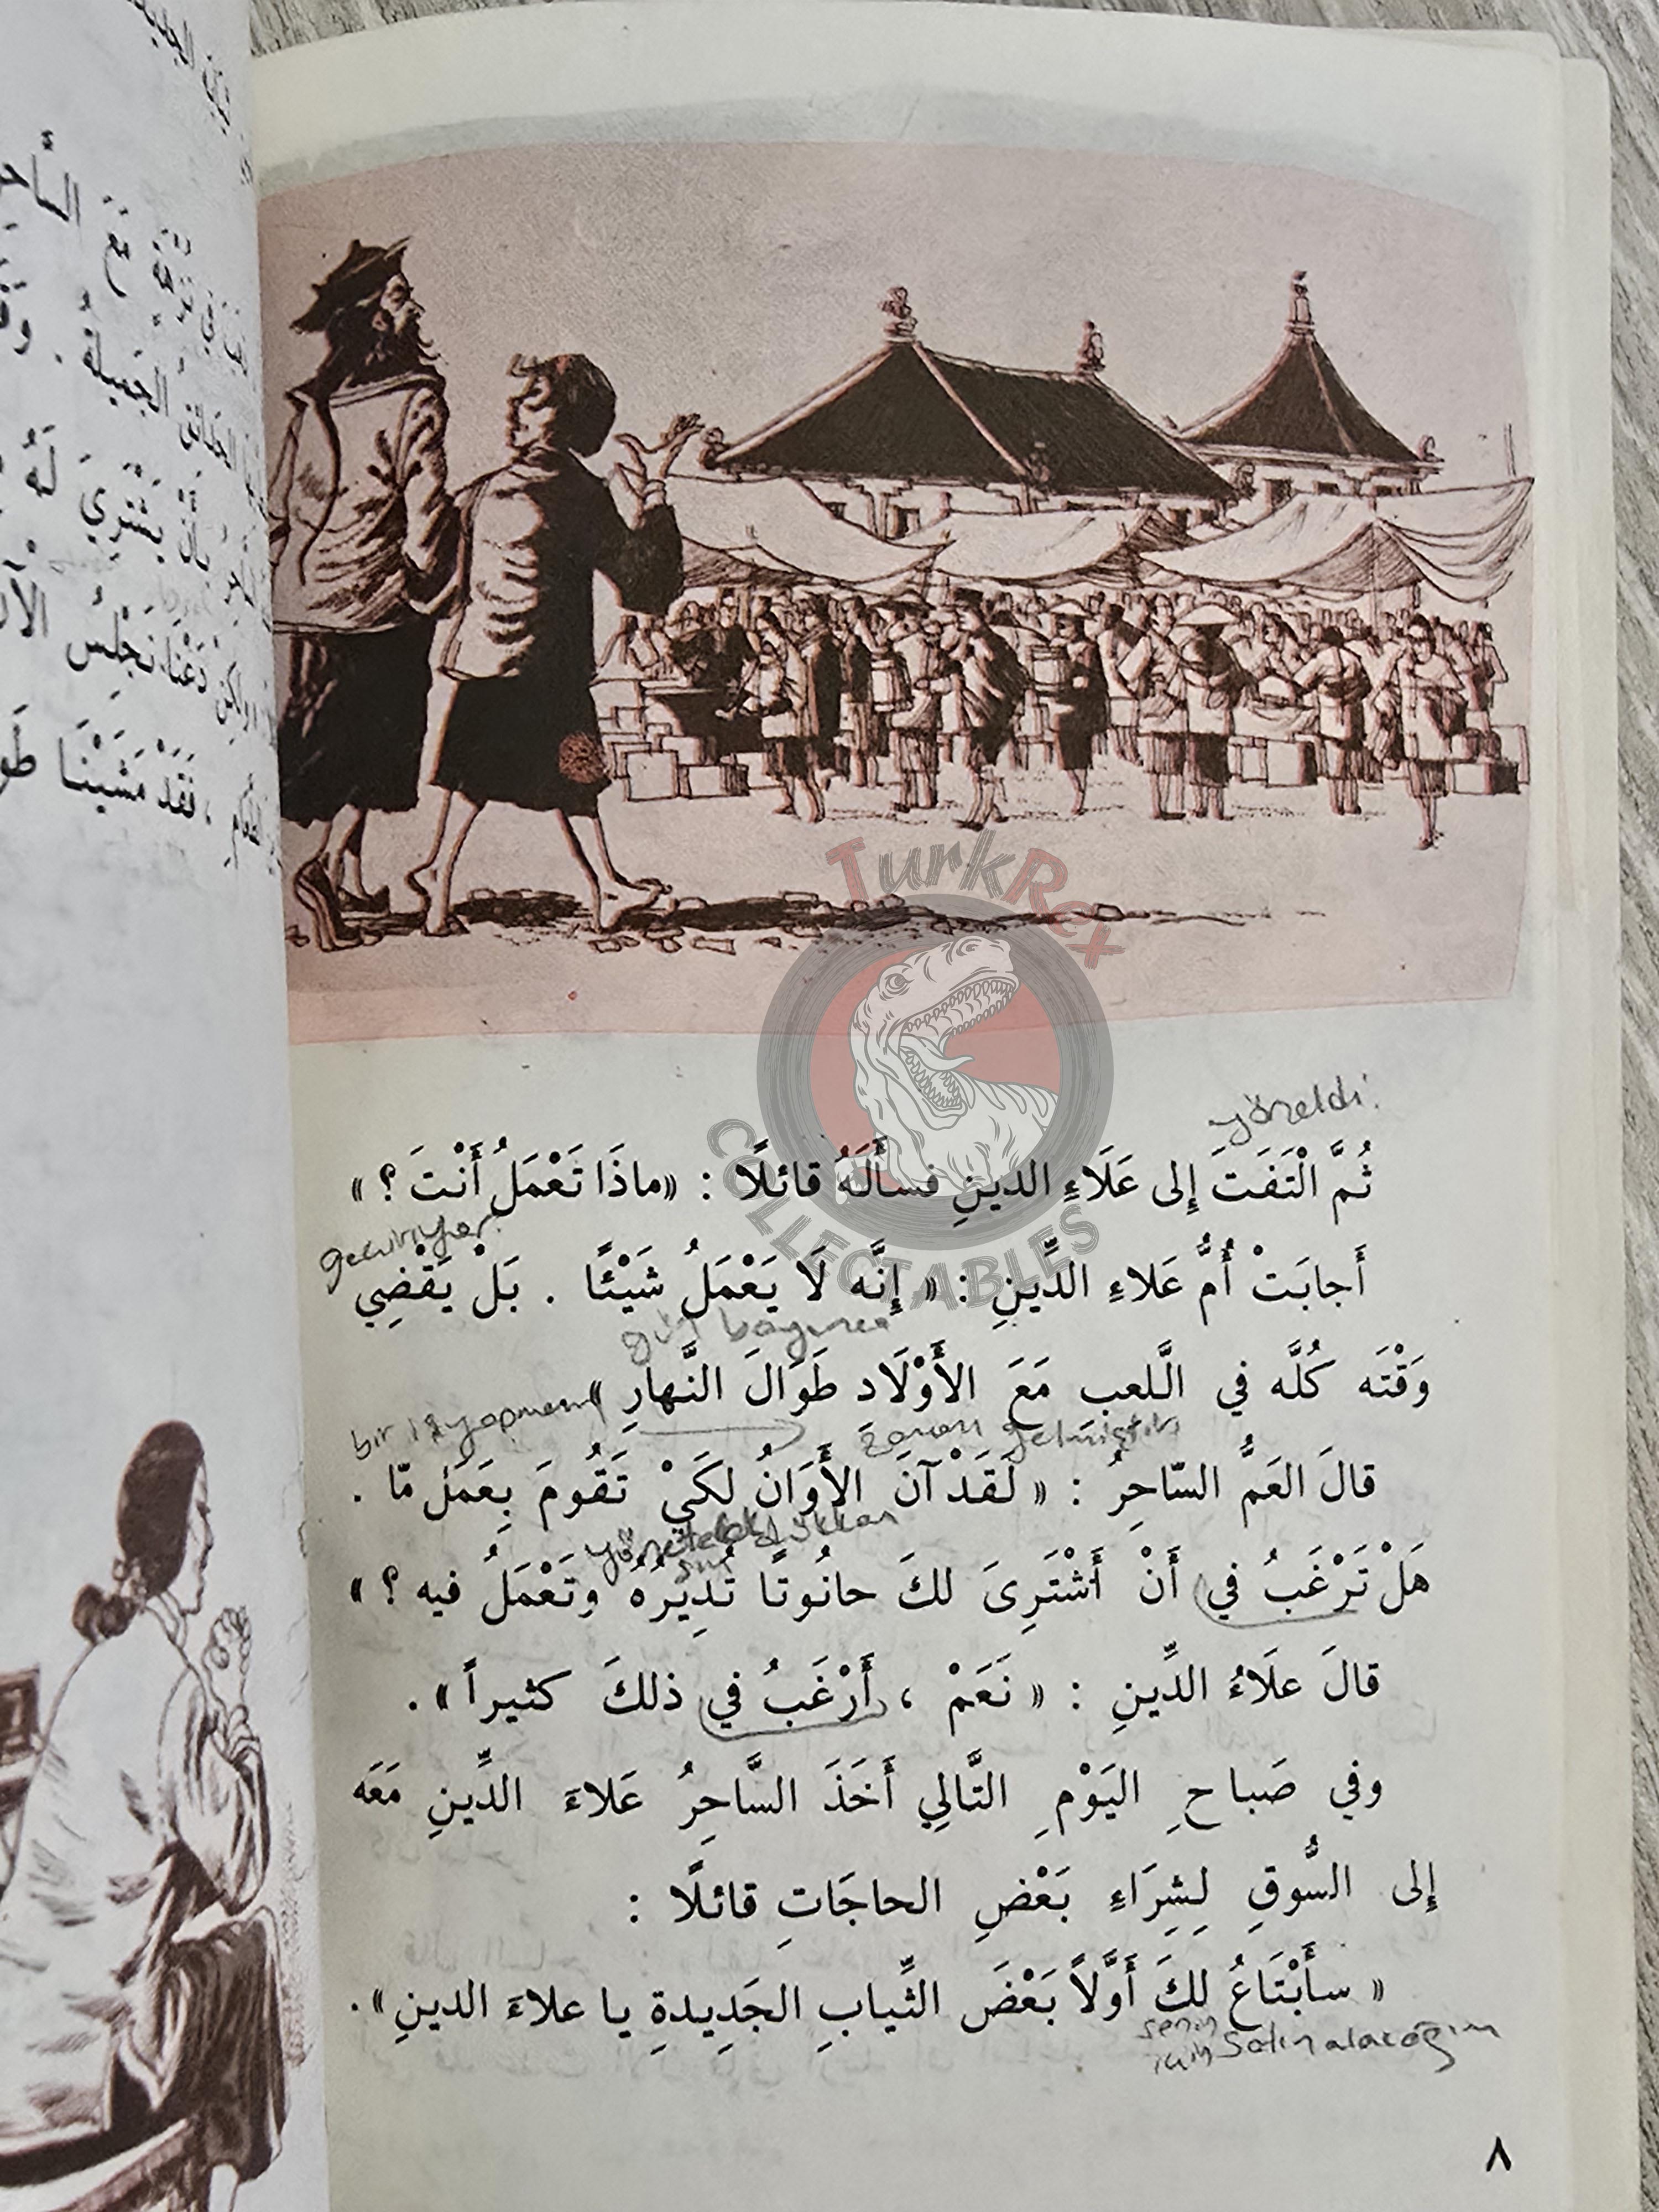 yöneldi
ثُمَّ الْتَفَتَ إِلى عَلَاءِ الدينِ فسأَلَهُ قائلًا : «ماذَا تَعْمَلُ أَنْتَ ؟ »
geçiriyor
أَجابَتْ أُمُّ عَلاءِ الدِّينِ : « إِنَّه لَا يَعْمَلُ شَيْئًا . بَلْ يَقْضِي
gün boyunca
وَقْتَه كُلَّه في الَّلعب مَعَ الأَوْلَاد طَوَالَ النَّهارِ »
bir iş yapman
zaman gelmiştir
قالَ العَمُّ السّاحِرُ : « لَقَدْ آنَ الأَوَانُ لكَيْ تَقُومَ بِعَمَلٍ مّا .
dükkan
هَلْ تَرْغَبُ في أَنْ أَشْتَرِىَ لكَ حانُوتًا تُدِيرُهُ وتَعْمَلُ فيه ؟ »
قالَ علَاءُ الدِّينِ : « نَعَمْ ، أَرْغَبُ في ذلكَ كثيراً » .
وفي صَباحِ اليَوْمِ التَّالِي أَخَذَ السَّاحِرُ عَلاءَ الدِّينِ مَعَه
إلى السُّوقِ لِشِرَاءِ بَعْضِ الحاجَاتِ قائلًا :
« سأَبْتَاعُ لكَ أَوَّلاً بَعْضَ الثِّيابِ الجَدِيدةِ يا علاءَ الدينِ » .
senin
için satın alacağım
٨
TurkRex
COLLECTABLES